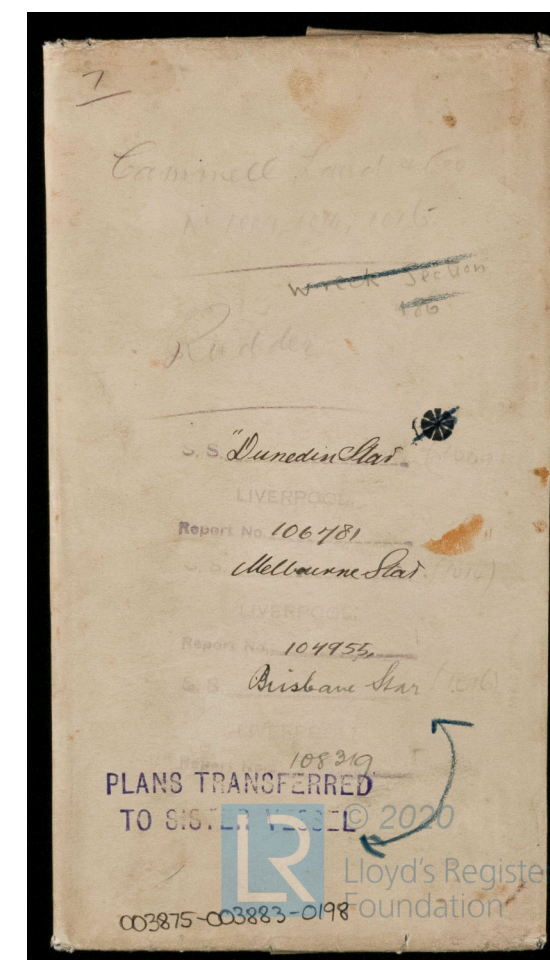 7
Cammell Laird & Co
Wreck Section
Rudder
S. S. "Dunedin Star
LIVERPOOL.
Report No. 106781
S. S. Melbourne Star (1014)
LIVERPOOL.
Report No. 104955
S. S. Brisbane Star (1016)
LIVERPOOL
Report No. 108319
PLANS TRANSFERRED
TO SISTER VESSEL
LR
© 2020
Lloyd's Registe
Foundation
003875-003883-0198